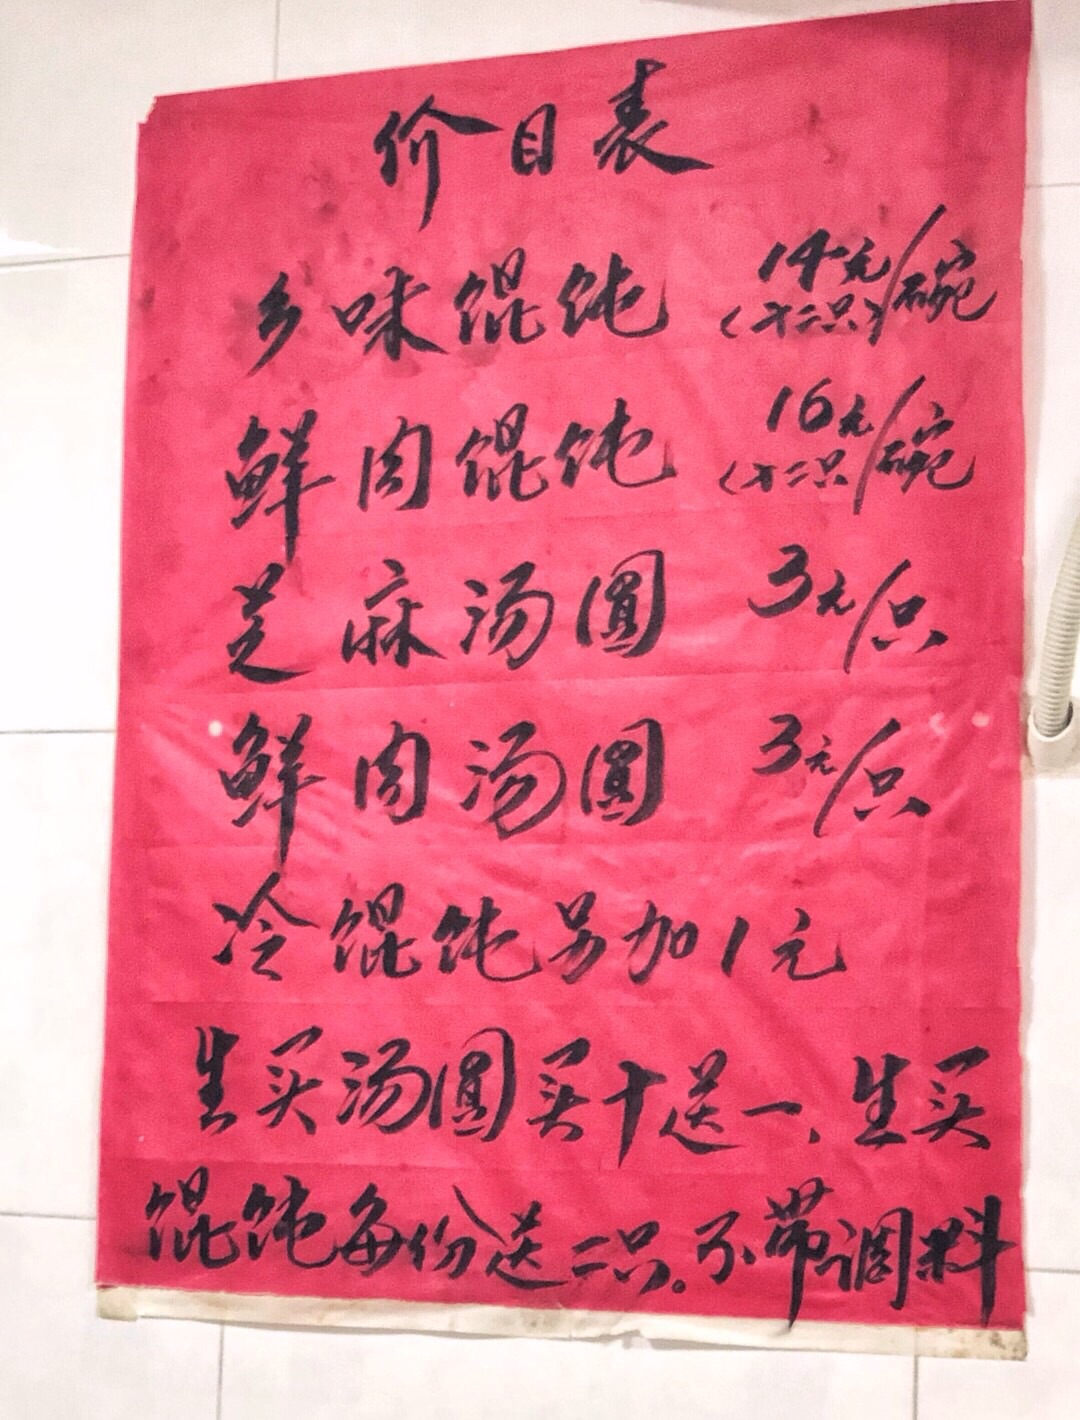 价目表
乡味馄饨 14元/碗
(十二只)
鲜肉馄饨 16元/碗
(十二只
芝麻汤圆 3元/只
鲜肉汤圆 3元/只
冷馄饨另加1元
生买汤圆买十送一、生买
馄饨每份送二只。不带调料